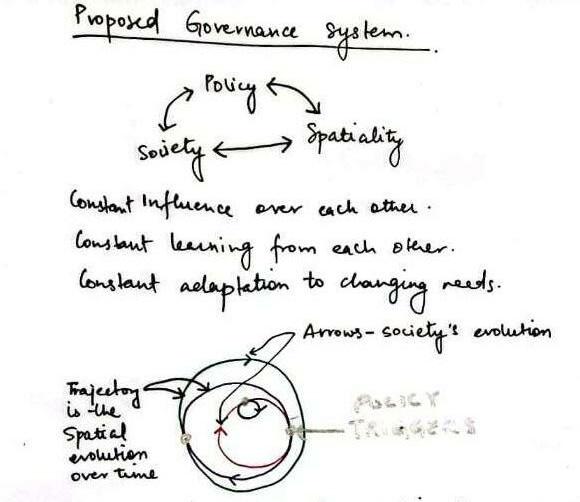 Proposed Governance system.
Policy
Society
Spatiality
Constant Influence over each other.
Constant learning from each other.
Constant adaptation to changing needs.
Arrows - society's evolution
Trajectory
is the
Spatial
evolution
over time
POLICY
TRIGGERS